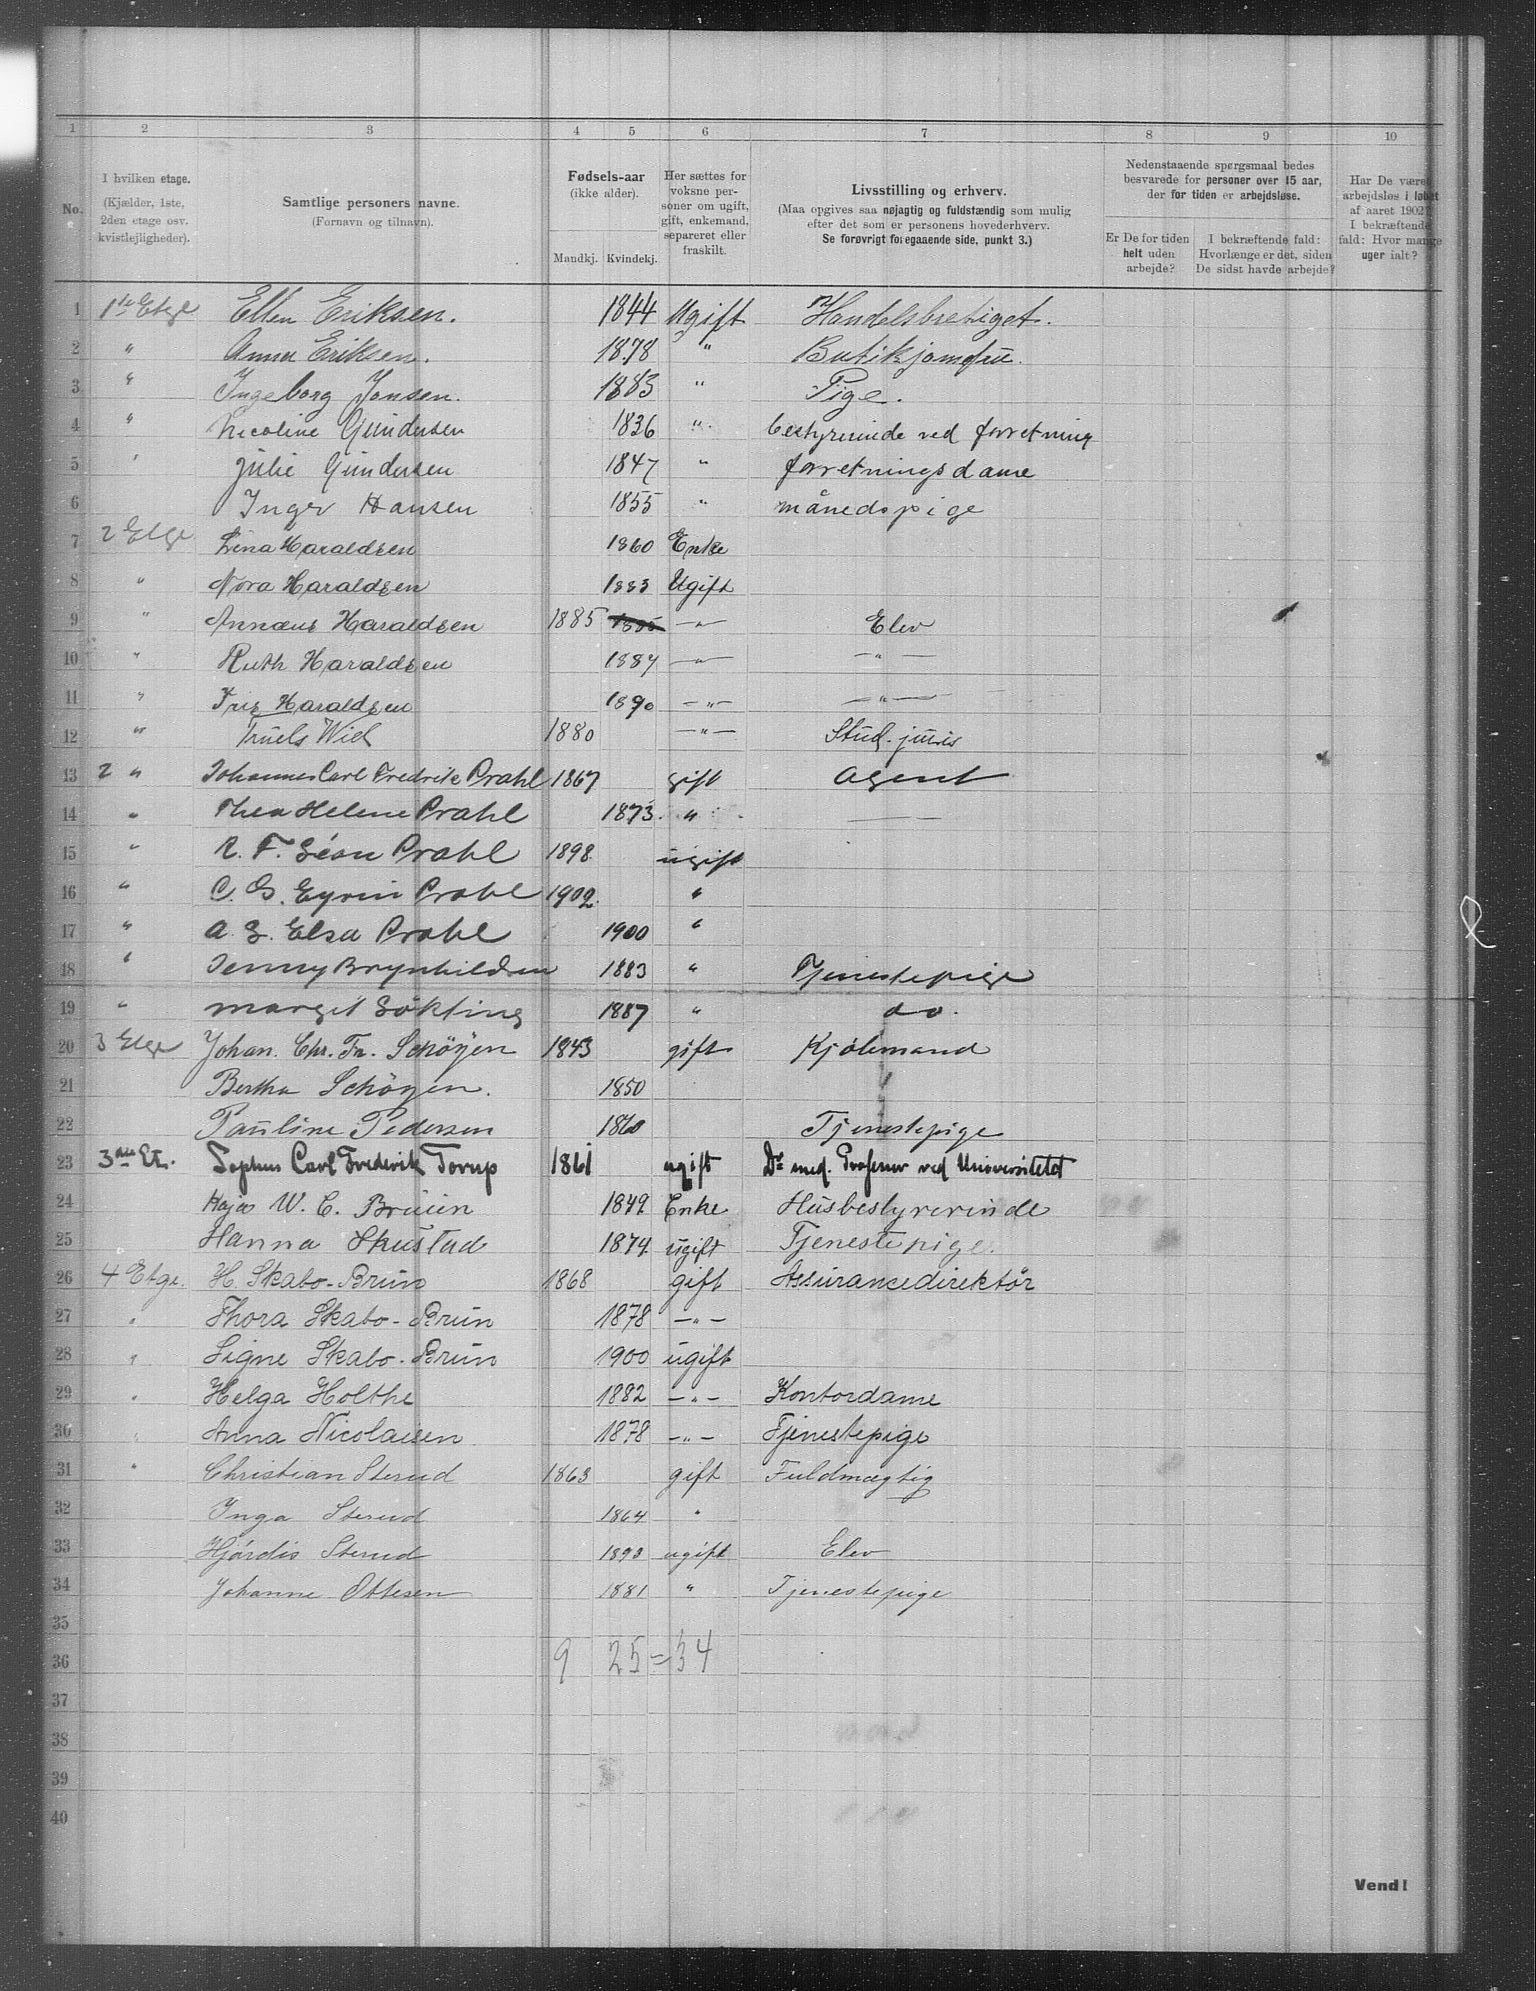 1 2 3 4 5 6 7 8 9 10
No.
I hvilken etage.
(Kjælder, 1ste,
2den etage osv.
kvistlejligheder).
Samtlige personers navne.
(Fornavn og tilnavn).
Fødsels-aar
(ikke alder).
Mandkj. Kvindekj.
Her sættes for
voksne per-
soner om ugift,
gift, enkemand,
separeret eller
fraskilt.
Livsstilling og erhverv.
(Maa opgives saa nøjagtig og fuldstændig som mulig
efter det som er personens hovederhverv.
Se forøvrigt foregaaende side, punkt 3.)
Nedenstaaende spørgsmaal bedes
besvarede for personer over 15 aar,
der for tiden er arbejdsløse.
Er De for tiden
helt uden
arbejde?
I bekræftende fald:
Hvorlænge er det, siden
De sidst havde arbejde?
Har De været
arbejdsløs i løbet
af aaret 1902?
I bekræftende
fald: Hvor mange
uger ialt?
1 1ste Etge Ellen Eriksen. 1844 Ugift Handelsbretiget.
2 " Anna Eriksen. 1878 " Butikjomfru.
3 " Ingeborg Jonsen. 1883 " Pige.
4 " Nicoline Gundersen 1836 " bestyrerinde ved forretning
5 " Julie Gundersen 1847 " forretningsdame
6 Inger Hansen 1855 " månedspige
7 2 Etge Lina Haraldsen 1860 Enke
8 " Nora Haraldsen 1883 Ugift
9 " Annæus Haraldsen 1885 1885 —"— Elev
10 " Ruth Haraldsen 1887 —"— —"—
11 " Iris Haraldsen 1890 —"— —"—
12 " Truels Wiel 1880 —"— Stud. juris
13 2 " Johannes Carl Fredrik Prahl 1867 gift Agent
14 " Thea Helene Prahl 1873. " —
15 " R. F. Léon Prahl 1898 ugift
16 " C. G. Eyvin Prahl 1902. "
17 " A. S. Elsa Prahl 1900 "
18 " Jenny Brynhildsen 1883 " Tjenestepige
19 " Margit Løkting 1887 " do.
20 3 Etge Johan. Chr. Fr. Schöyen 1843 gift Kjøbmand
21 Bertha Schöyen. 1850
22 Pauline Pedersen 1860 Tjenestepige
23 3die Et. Sophus Carl Frederik Torup 1861 ugift Dr med. Professor ved Universitetet
24 Kaja W. C. Bruun 1849 Enke Husbestyrerinde
25 Hanna Skustad 1874 ugift Tjenestepige.
26 4 Etge. H. Skabo-Brun 1868 gift Assurancedirektør
27 " Thora Skabo-Brun 1878 —"—
28 " Signe Skabo-Brun 1900 ugift
29 " Helga Holthe 1882 —"— Kontordame
30 " Anna Nicolaisen 1878 —"— Tjenestepige
31 " Christian Sterud 1863 gift Fuldmægtig
32 Inga Sterud 1864 "
33 Hjørdis Sterud 1890 ugift Elev
34 Johanne Ottesen 1881 " Tjenestepige
35
36 9 25 = 34
37
38
39
40
Vend!